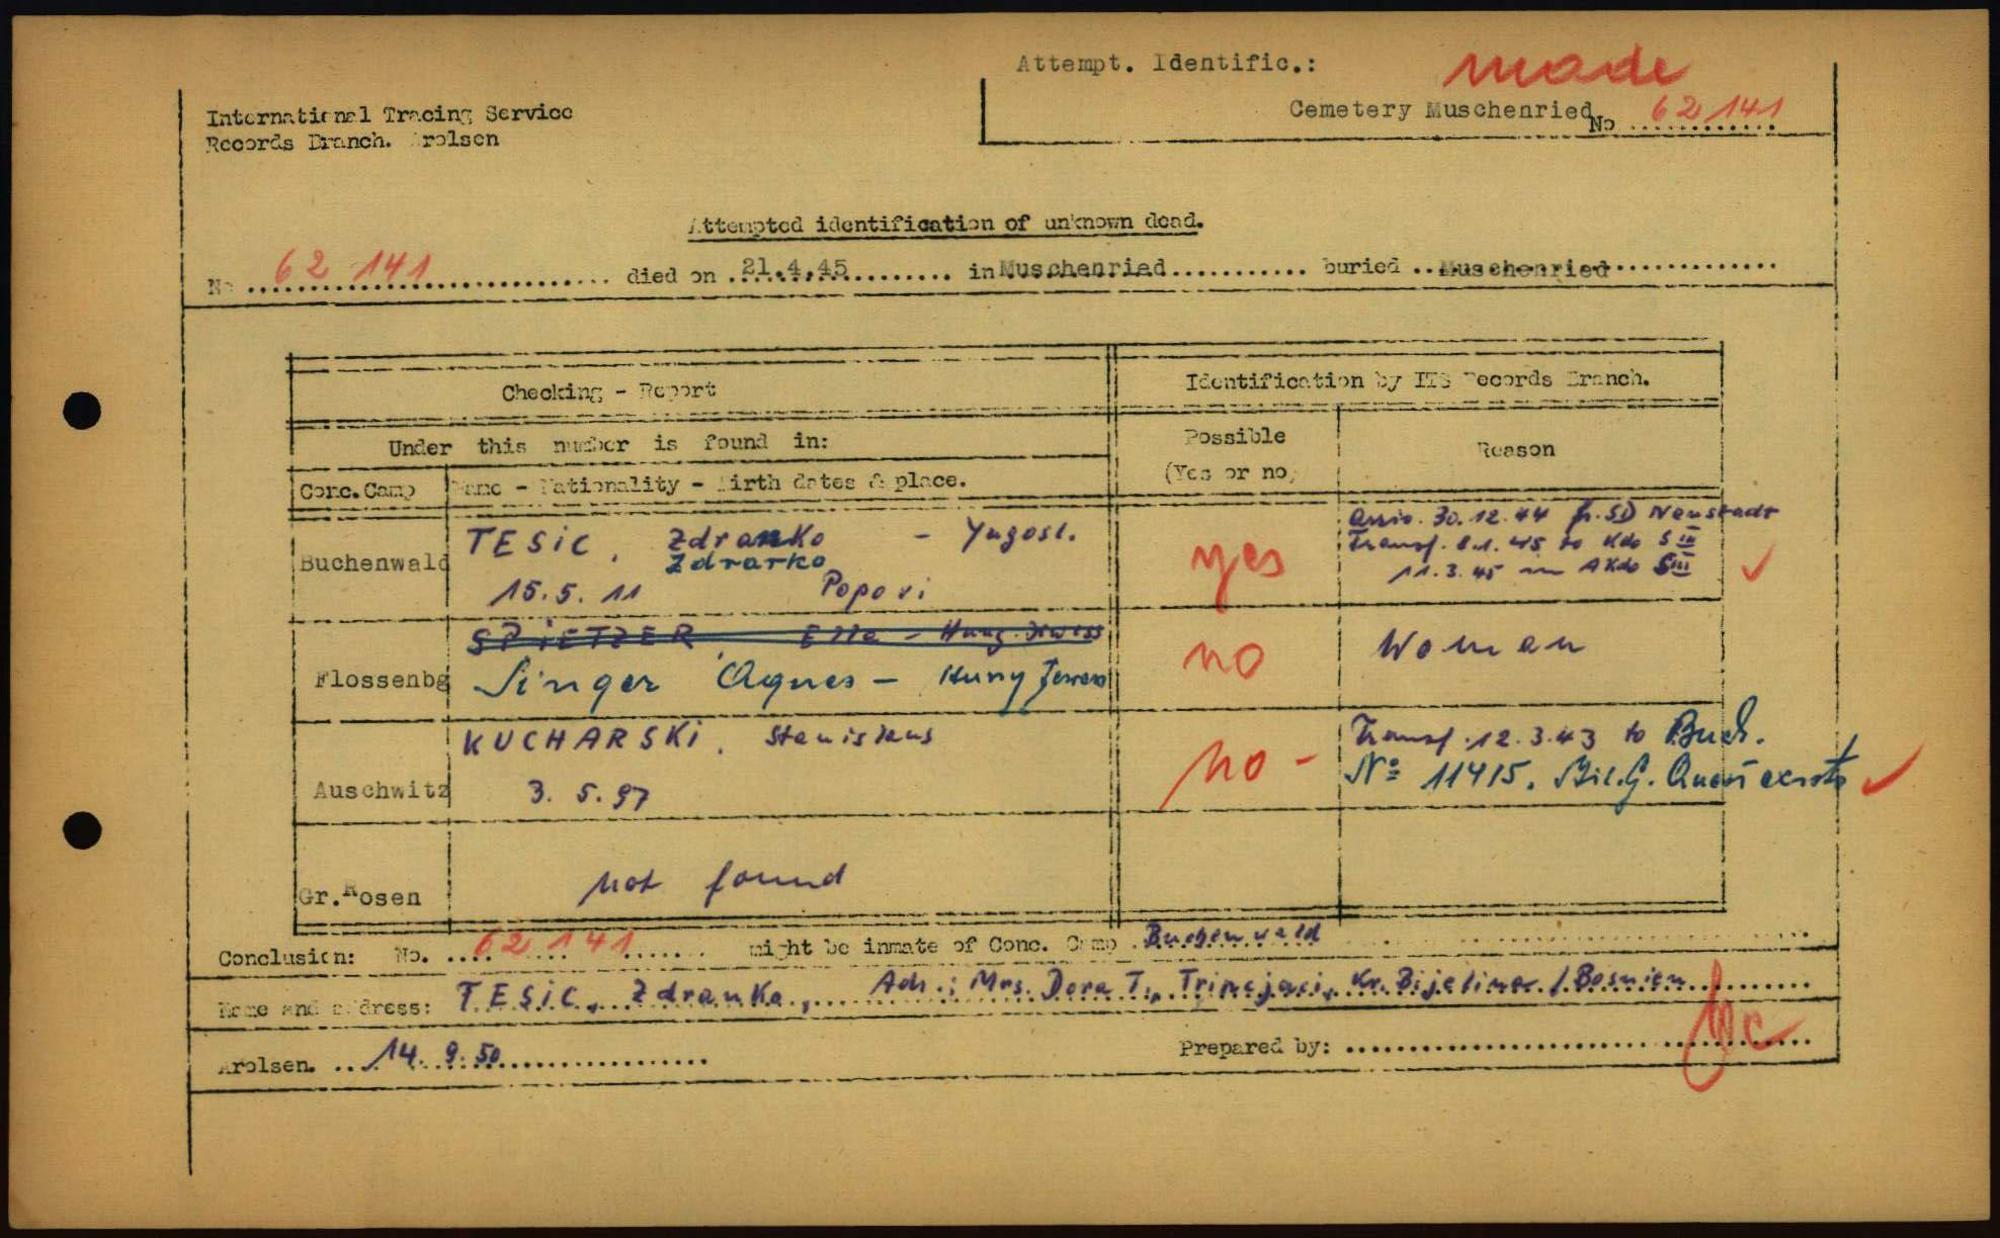 Attempt. Identific.: made
International Tracing Service
Cemetery Muschenried No 62 141
Records Branch. Arolsen
Attempted identification of unknown dead.
No 62 141 died on 21.4.45 in Muschenried buried Muschenried
Checking - Report
Identification by ITS Records Branch.
Under this number is found in:
Possible
(Yes or no)
Reason
Conc.Camp
Name - Nationality - Birth dates & place.
Buchenwald
TESIC, Zdranko - Yugosl.
Zdrarko
15.5.11 Popovi
yes
Arriv. 30.12.44 fr. SD Neustadt
Transf. 8.1.45 to Kdo S III
11.3.45 AKdo SIII
Flossenbg
SPIETZER Ella - Hung.
Singer Agnes - Hung
no
Woman
Auschwitz
KUCHARSKI, Stanislaus
3.5.97
no -
Transf. 12.3.43 to Buch.
Nº 11415.
Gr.Rosen
not found
Conclusion: No. 62 141 might be inmate of Conc. Camp Buchenwald
Name and address: TESIC, Zdranko, Adr.: Mrs. Dora T., Kr. Bijelina / Bosnien
Arolsen. 14.9.50
Prepared by: